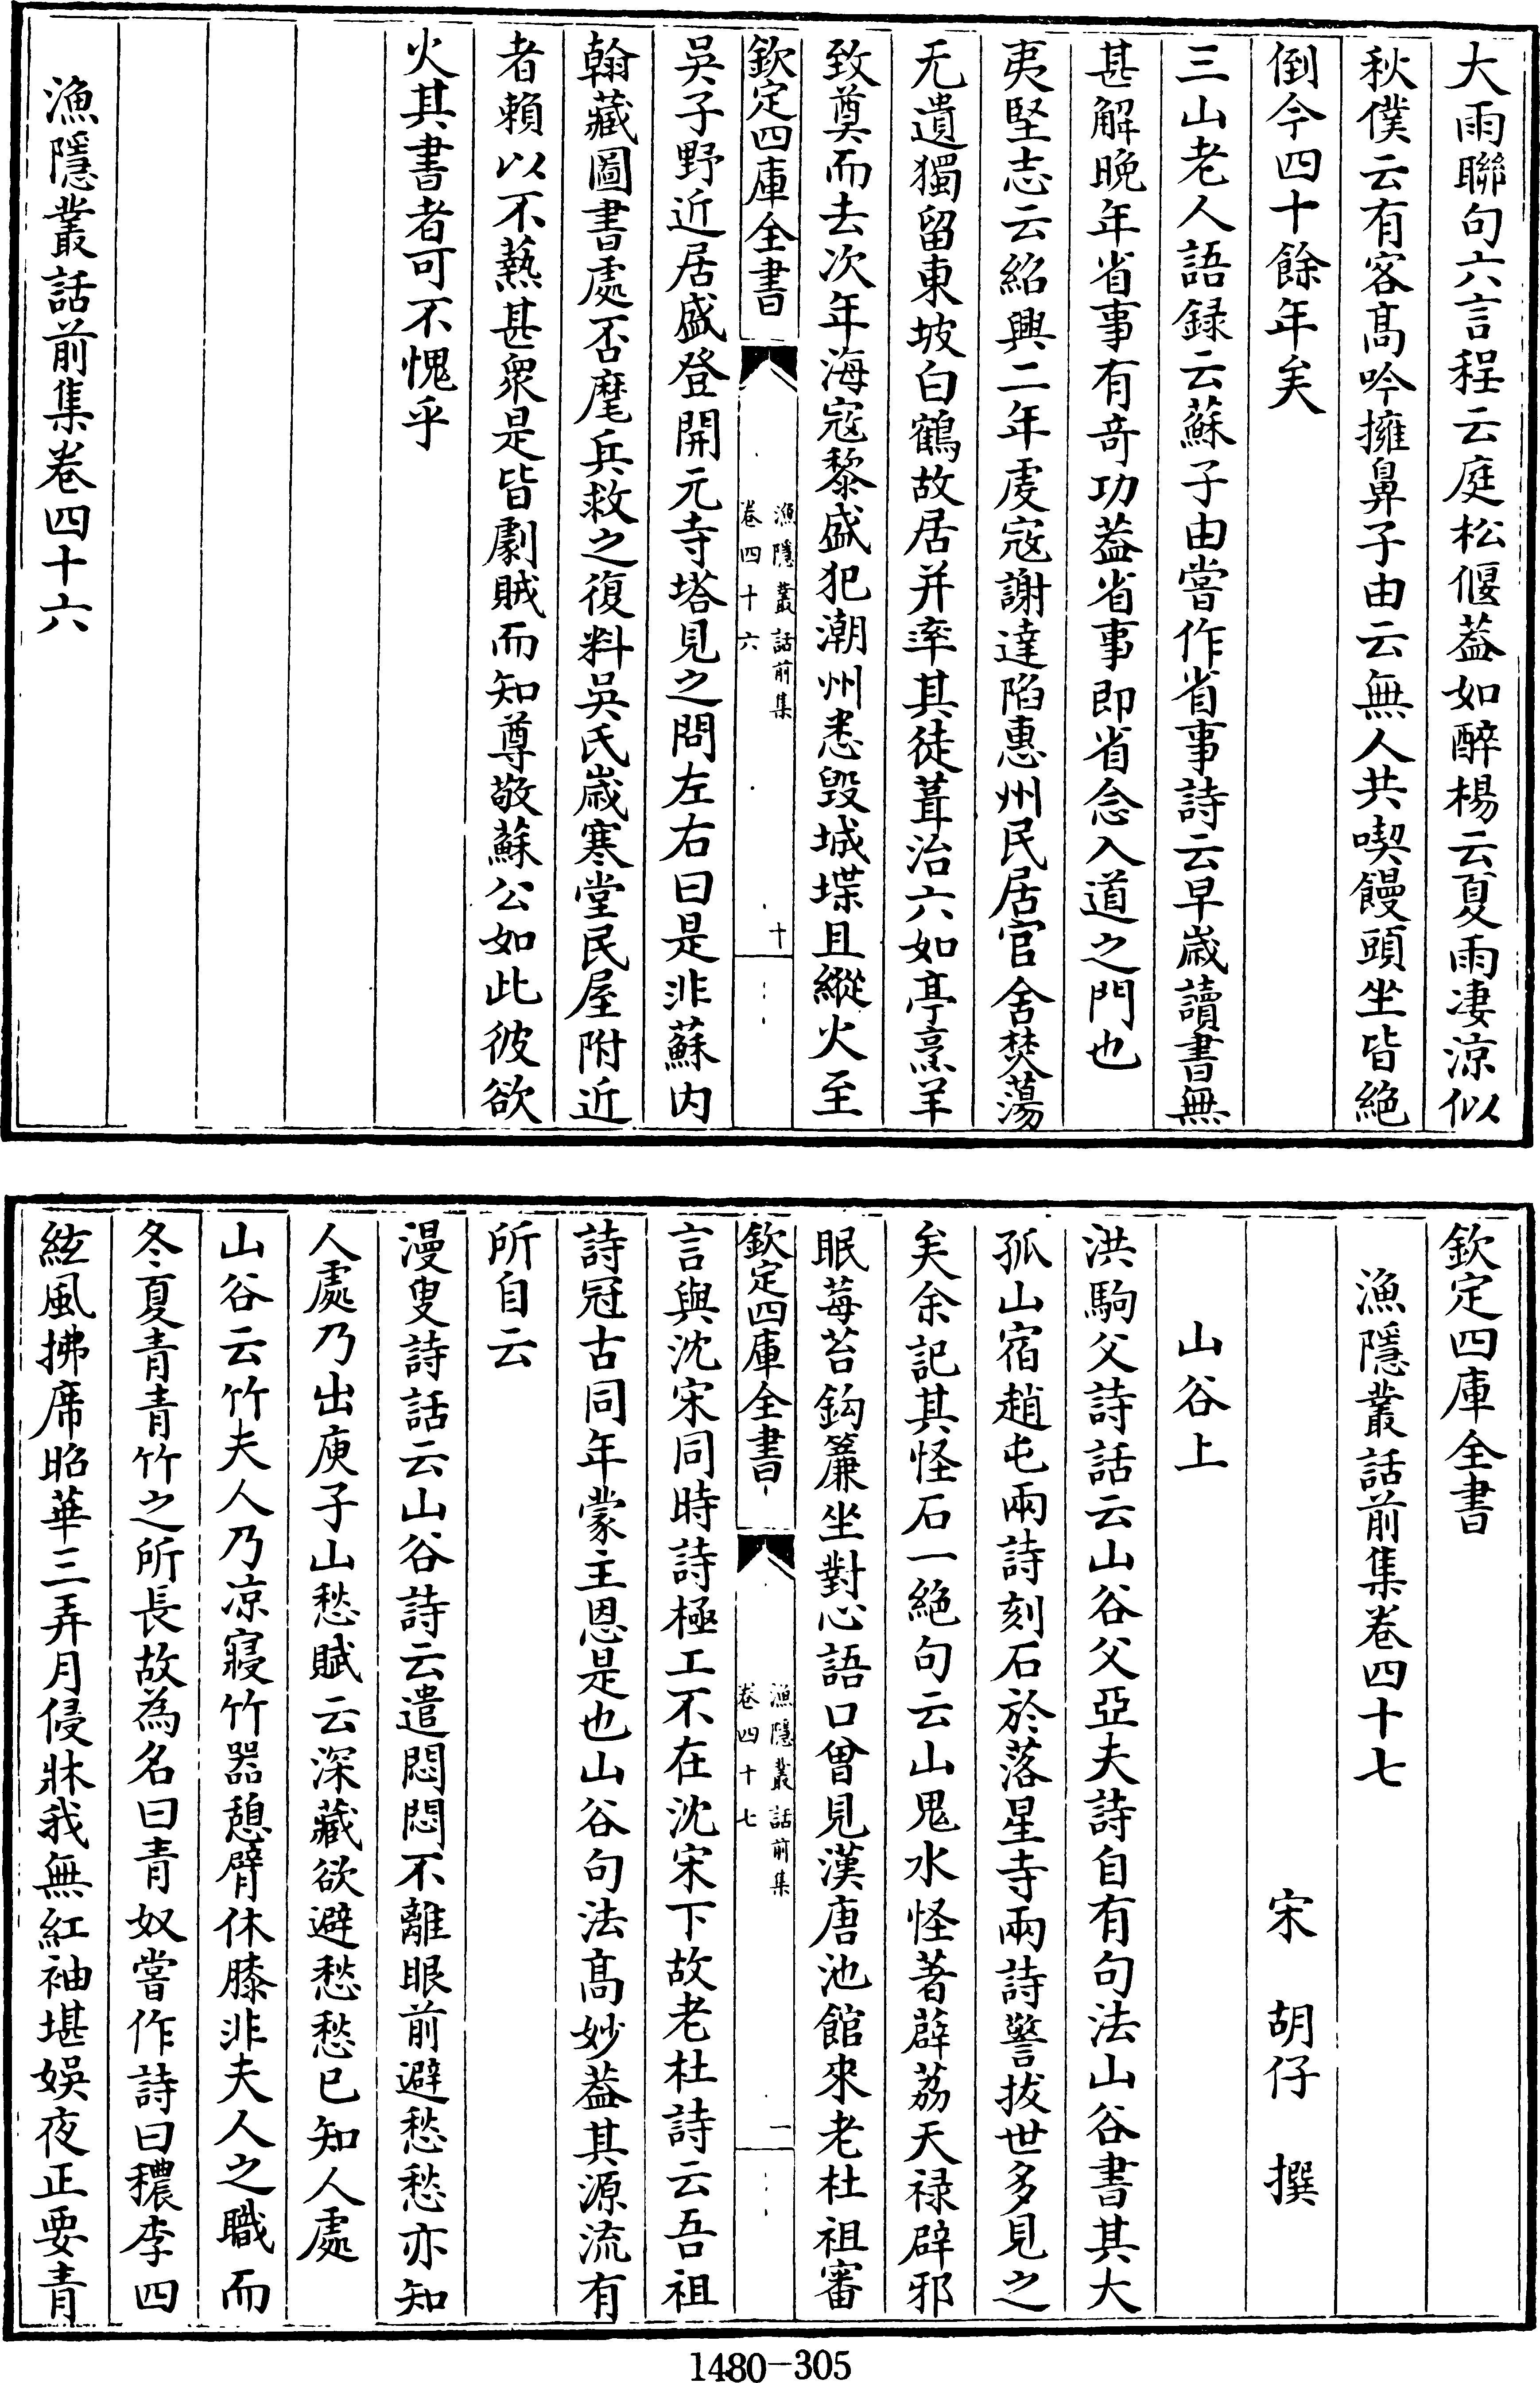 大雨聯句六言程云庭松偃葢如醉楊云夏雨凄涼似
秋僕云有客髙吟擁鼻子由云無人共喫饅頭坐皆絶
倒今四十餘年矣
三山老人語録云蘇子由嘗作省事詩云早嵗讀書無
甚解晚年省事有竒功葢省事即省念入道之門也
夷堅志云紹興二年䖍寇謝達陷惠州民居官舍焚蕩
无遺獨留東坡白鶴故居并率其徒葺治六如亭烹羊
致奠而去次年海寇黎盛犯潮州悉毁城堞且縱火至
欽定四庫全書
漁隱叢話前集
卷四十六
十
吳子野近居盛登開元寺塔見之問左右曰是非蘇内
翰藏圖書處否麾兵救之復料吳氏嵗寒堂民屋附近
者賴以不爇甚衆是皆劇賊而知尊敬蘇公如此彼欲
火其書者可不愧乎
漁隱叢話前集卷四十六
欽定四庫全書
漁隱叢話前集卷四十七
宋 胡仔 撰
山谷上
洪駒父詩話云山谷父亞夫詩自有句法山谷書其大
孤山宿趙屯兩詩刻石於落星寺兩詩警拔世多見之
矣余記其怪石一絶句云山鬼水怪著薜荔天禄辟邪
眠莓苔鈎簾坐對心語口曾見漢唐池館來老杜祖審
欽定四庫全書
漁隱叢話前集
卷四十七
一
言與沈宋同時詩極工不在沈宋下故老杜詩云吾祖
詩冠古同年蒙主恩是也山谷句法髙妙葢其源流有
所自云
漫叟詩話云山谷詩云遣悶悶不離眼前避愁愁亦知
人處乃出庾子山愁賦云深藏欲避愁愁已知人處
山谷云竹夫人乃凉寢竹器憩臂休膝非夫人之職而
冬夏青青竹之所長故為名曰青奴嘗作詩曰穠李四
絃風拂席昭華三弄月侵牀我無紅袖堪娯夜正要青
1480-305